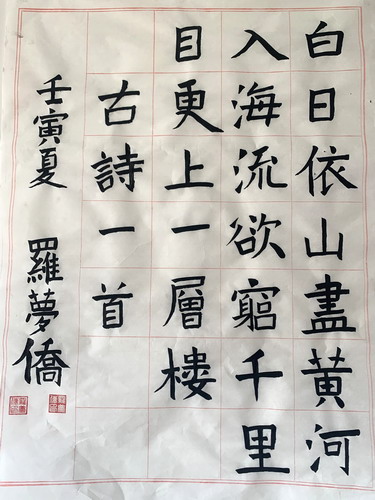 白日依山盡黄河
入海流欲窮千里
目更上一層楼
古詩一首
壬寅夏 羅夢僑